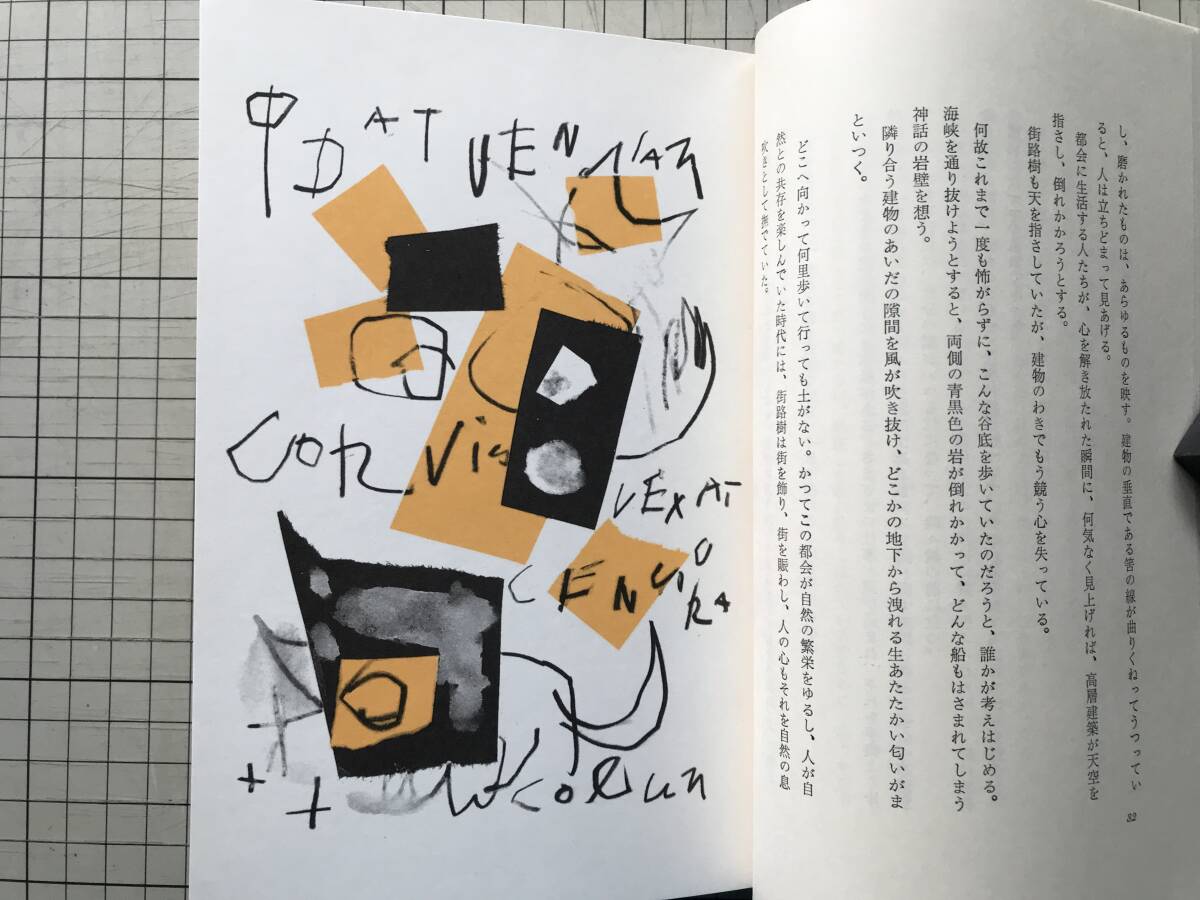 し、磨かれたものは、あらゆるものを映す。建物の垂直である筈の線が曲りくねってうつってい
ると、人は立ちどまって見あげる。
都会に生活する人たちが、心を解き放たれた瞬間に、何気なく見上げれば、高層建築が天空を
指さし、倒れかかろうとする。
街路樹も天を指さしていたが、建物のわきでもう競う心を失っている。
何故これまで一度も怖がらずに、こんな谷底を歩いていたのだろうと、誰かが考えはじめる。
海峡を通り抜けようとすると、両側の青黒色の岩が倒れかかって、どんな船もはさまれてしまう
神話の岩壁を想う。
隣り合う建物のあいだの隙間を風が吹き抜け、どこかの地下から洩れる生あたたかい匂いがま
といつく。
どこへ向かって何里歩いて行っても土がない。かつてこの都会が自然の繁栄をゆるし、人が自
然との共存を楽しんでいた時代には、街路樹は街を飾り、街を賑わし、人の心もそれを自然の息
吹きとして撫でていた。
32
DAT
CoR Vis
VEXAT